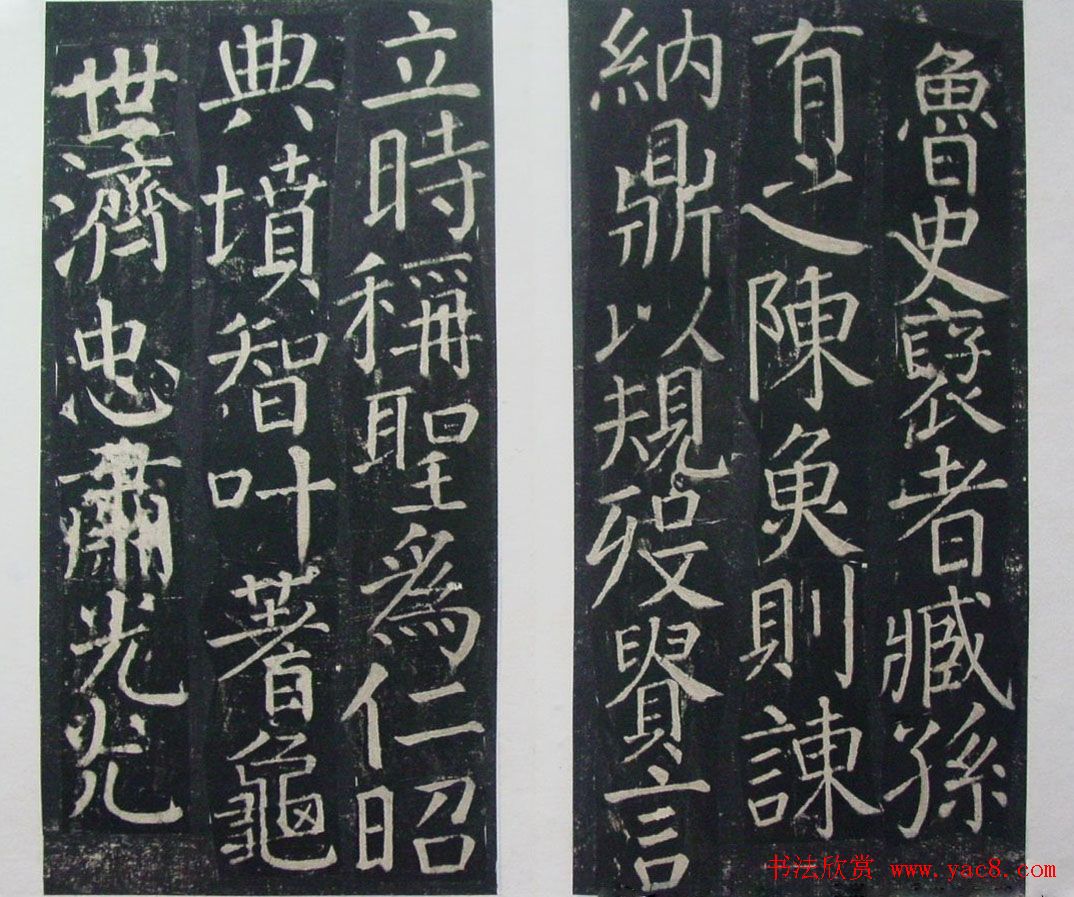 魯史襃者臧孫
有之陳魚則諫
納鼎以規歿貴言
立時稱聖爲仁昭
典墳智叶蓍龜
世濟忠肅光光
书法欣赏 www.yac8.com